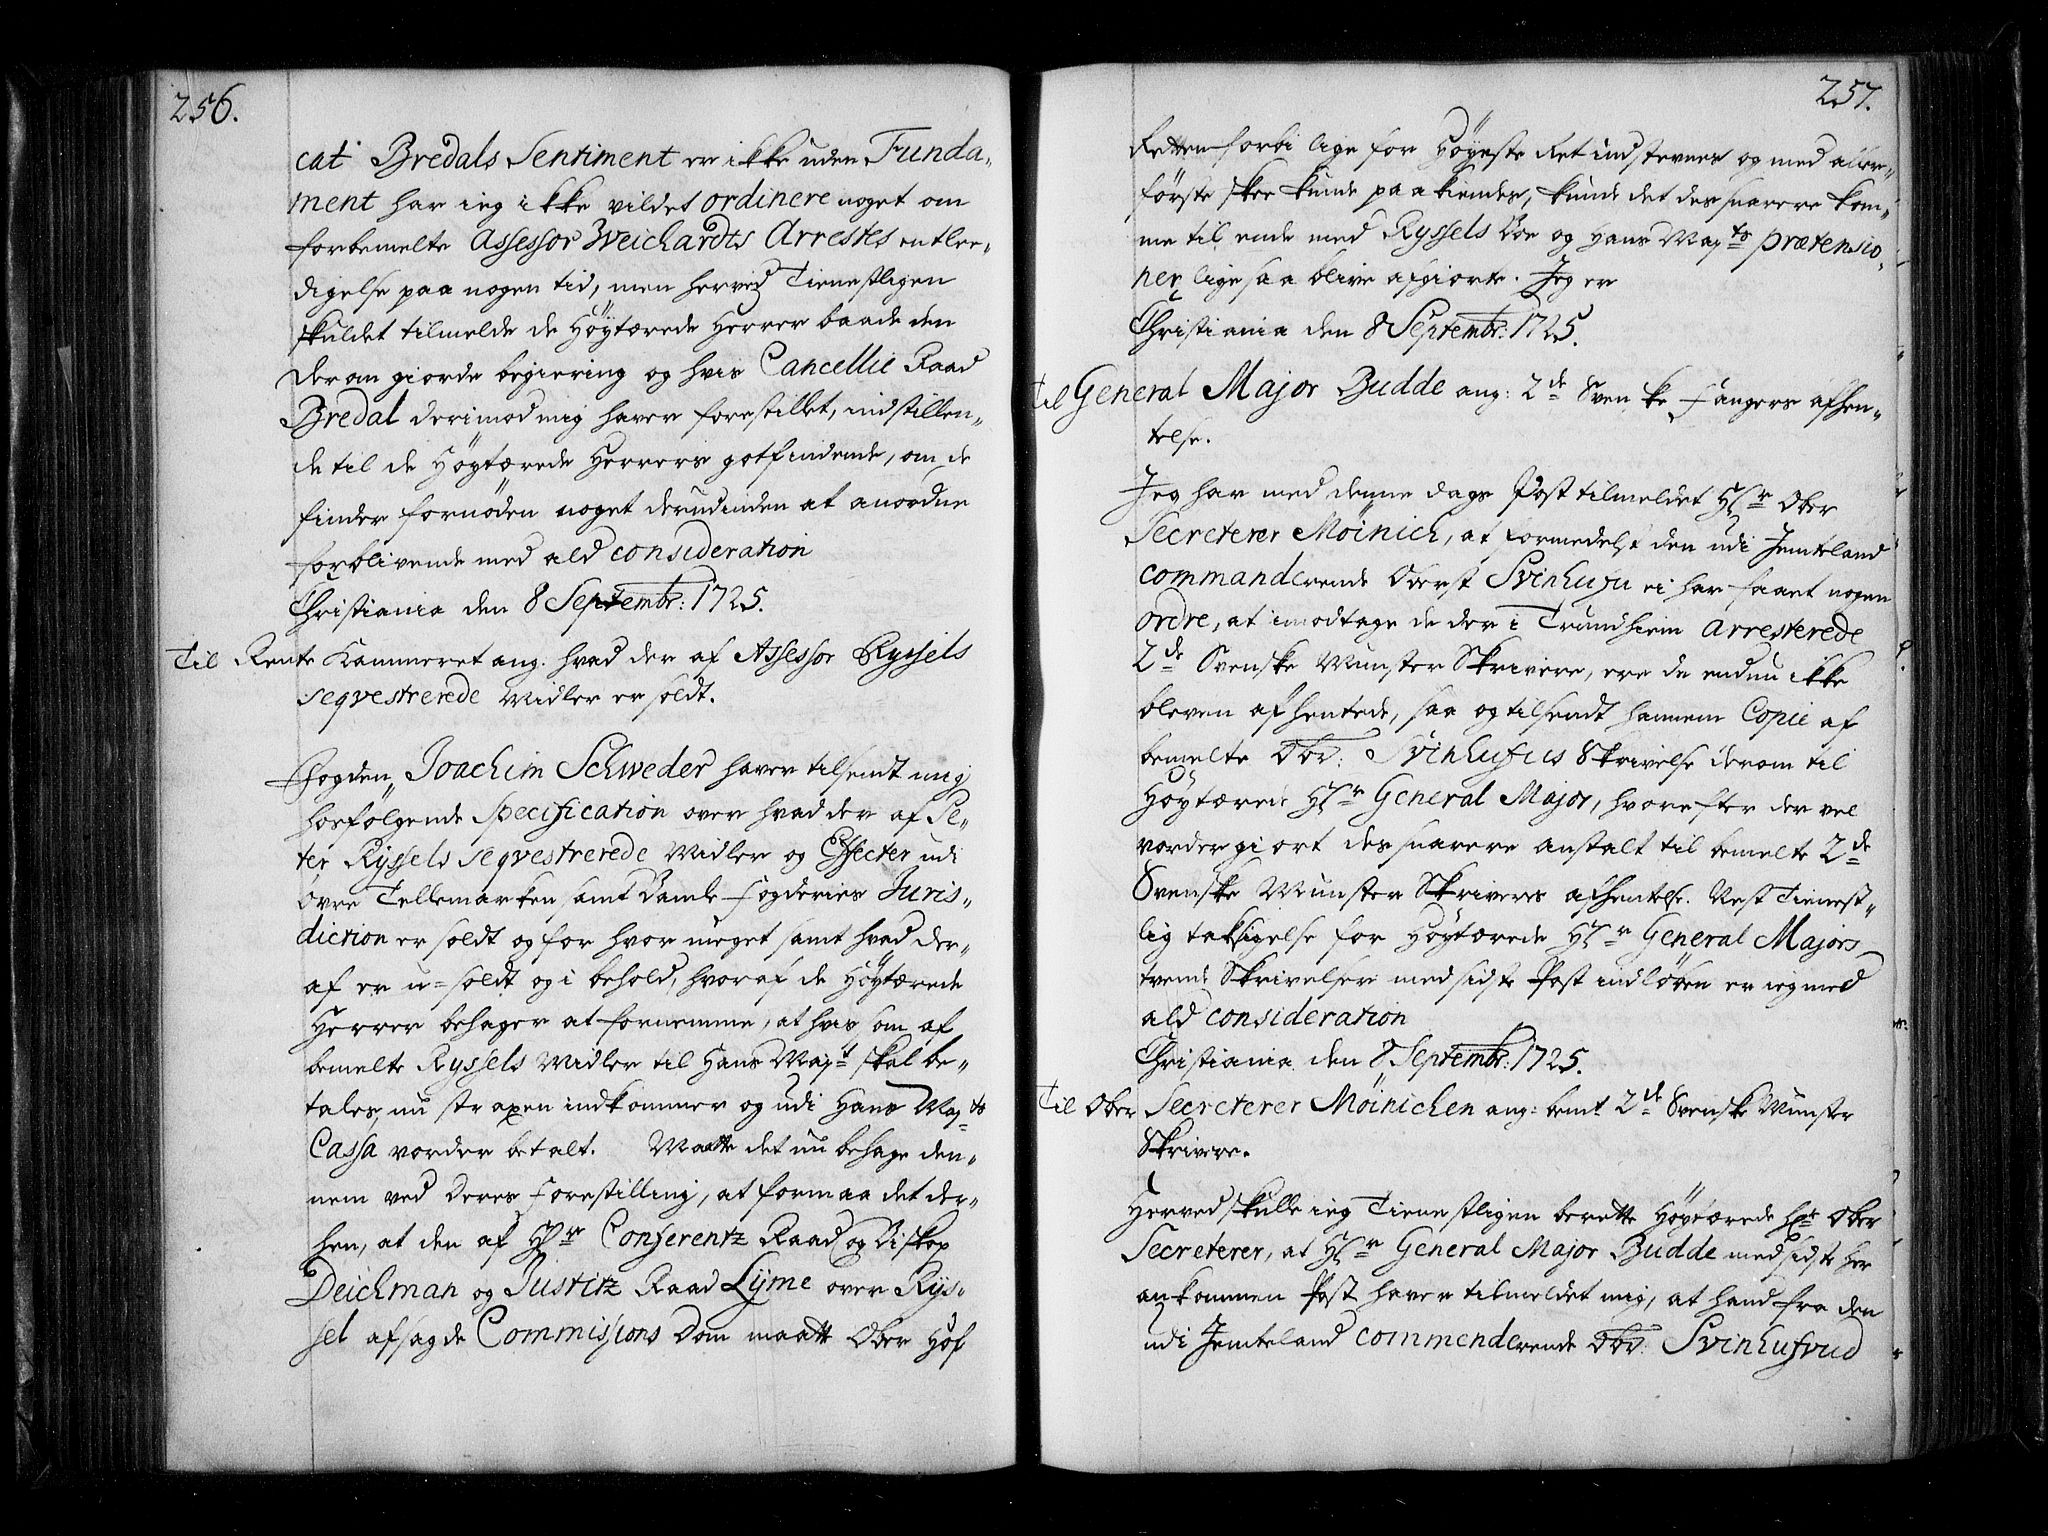 256.
cat Bredals Sentiment er ikke uden Funda-
ment har ieg ikke vildet ordinere noget om
forbemelte Assessor Weichardts Arrestes entlee-
digelse paa nogen tid, men herved Tienestligen
skuldet tilmelde de Høytærede Herrer baade den
derom giorde begiering og hvis Cancellie Raad
Bredal derimod mig haver forestillet, indstillen-
de til de Høytærede Herrers gotfindende, om de
finder fornøden noget derudinden at anordne
forblivende med ald consideration
Christiania den 8 Septembr: 1725.
Til Rente Kammeret ang: hvad der af Assessor Ryssels
seqvestrerede Midler er soldt.
Fogden Joachim Schweder haver tilsendt mig
hosfølgende specification over hvad der af Pe-
ter Ryssels seqvestrerede Midler og Effecter udi
øvre Tellemarken samt Bamle Fogderies Juris-
diction er soldt og for hvor meget samt hvad der-
af er u-soldt og i behold, hvoraf de Høytærede
Herrer behager at fornemme, at hvis som af
bemelte Ryssels Midler til Hans Mayt skal be-
tales, nu straxen indkommer og udi Hans Mayts
Cassa vorder betalt. Maatte det nu behage den-
nem ved deres Forestilling, at formaa det der-
hen, at den af Hr Conferentz Raad og Biskop
Deichman og Justitz Raad Lyme over Rys-
sel afsagde Commissions Dom maatte Ober Hof
257.
Retten forbi lige for Høyeste Ret indstevnes og med aller-
første skee kunde paakiendes, kunde det des snarere kom-
me til ende med Ryssels Boe og Hans Mayts prætensio-
ner ligesaa blive afgiorte. Jeg er
Christiania den 8 Septembr: 1725.
Til General Major Budde ang: 2de Svenske Fangers afhen-
telse.
Jeg har med denne dags Post tilmeldet Hr Ober
Secreterer Möinich, at formedelst den udi Jemteland
commanderende Oberst Svinhufu ei har faaet nogen
ordre, at imodtage de der i Trundhiem Arresterede
2de Svenske Munster Skrivere, ere de endnu ikke
bleven afhentede, saa og tilsendt hannem Copie af
bemelte Obr: Svinhufus Skrivelse derom til
Høytærede Hr General Major, hvorefter der vel
vorder giort des snarere anstalt til bemelte 2de
Svenske Munster Skriveres afhentelse. Nest Tienest-
lig taksigelse for Høytærede Hr General Majors
trende Skrivelser med sidste Post indløben er ieg med
ald consideration
Christiania den 8 Septembr: 1725.
Til Ober Secreterer Möinichen ang: bemt 2de Svenske Munster
Skrivere.
Herved skulle ieg Tienestligen berette Høytærede Hr Ober
Secreterer, at Hr General Major Budde med sidste her
ankommen Post haver tilmeldet mig, at hand fra den
udi Jemteland commenderende Obr: Svinhufvud